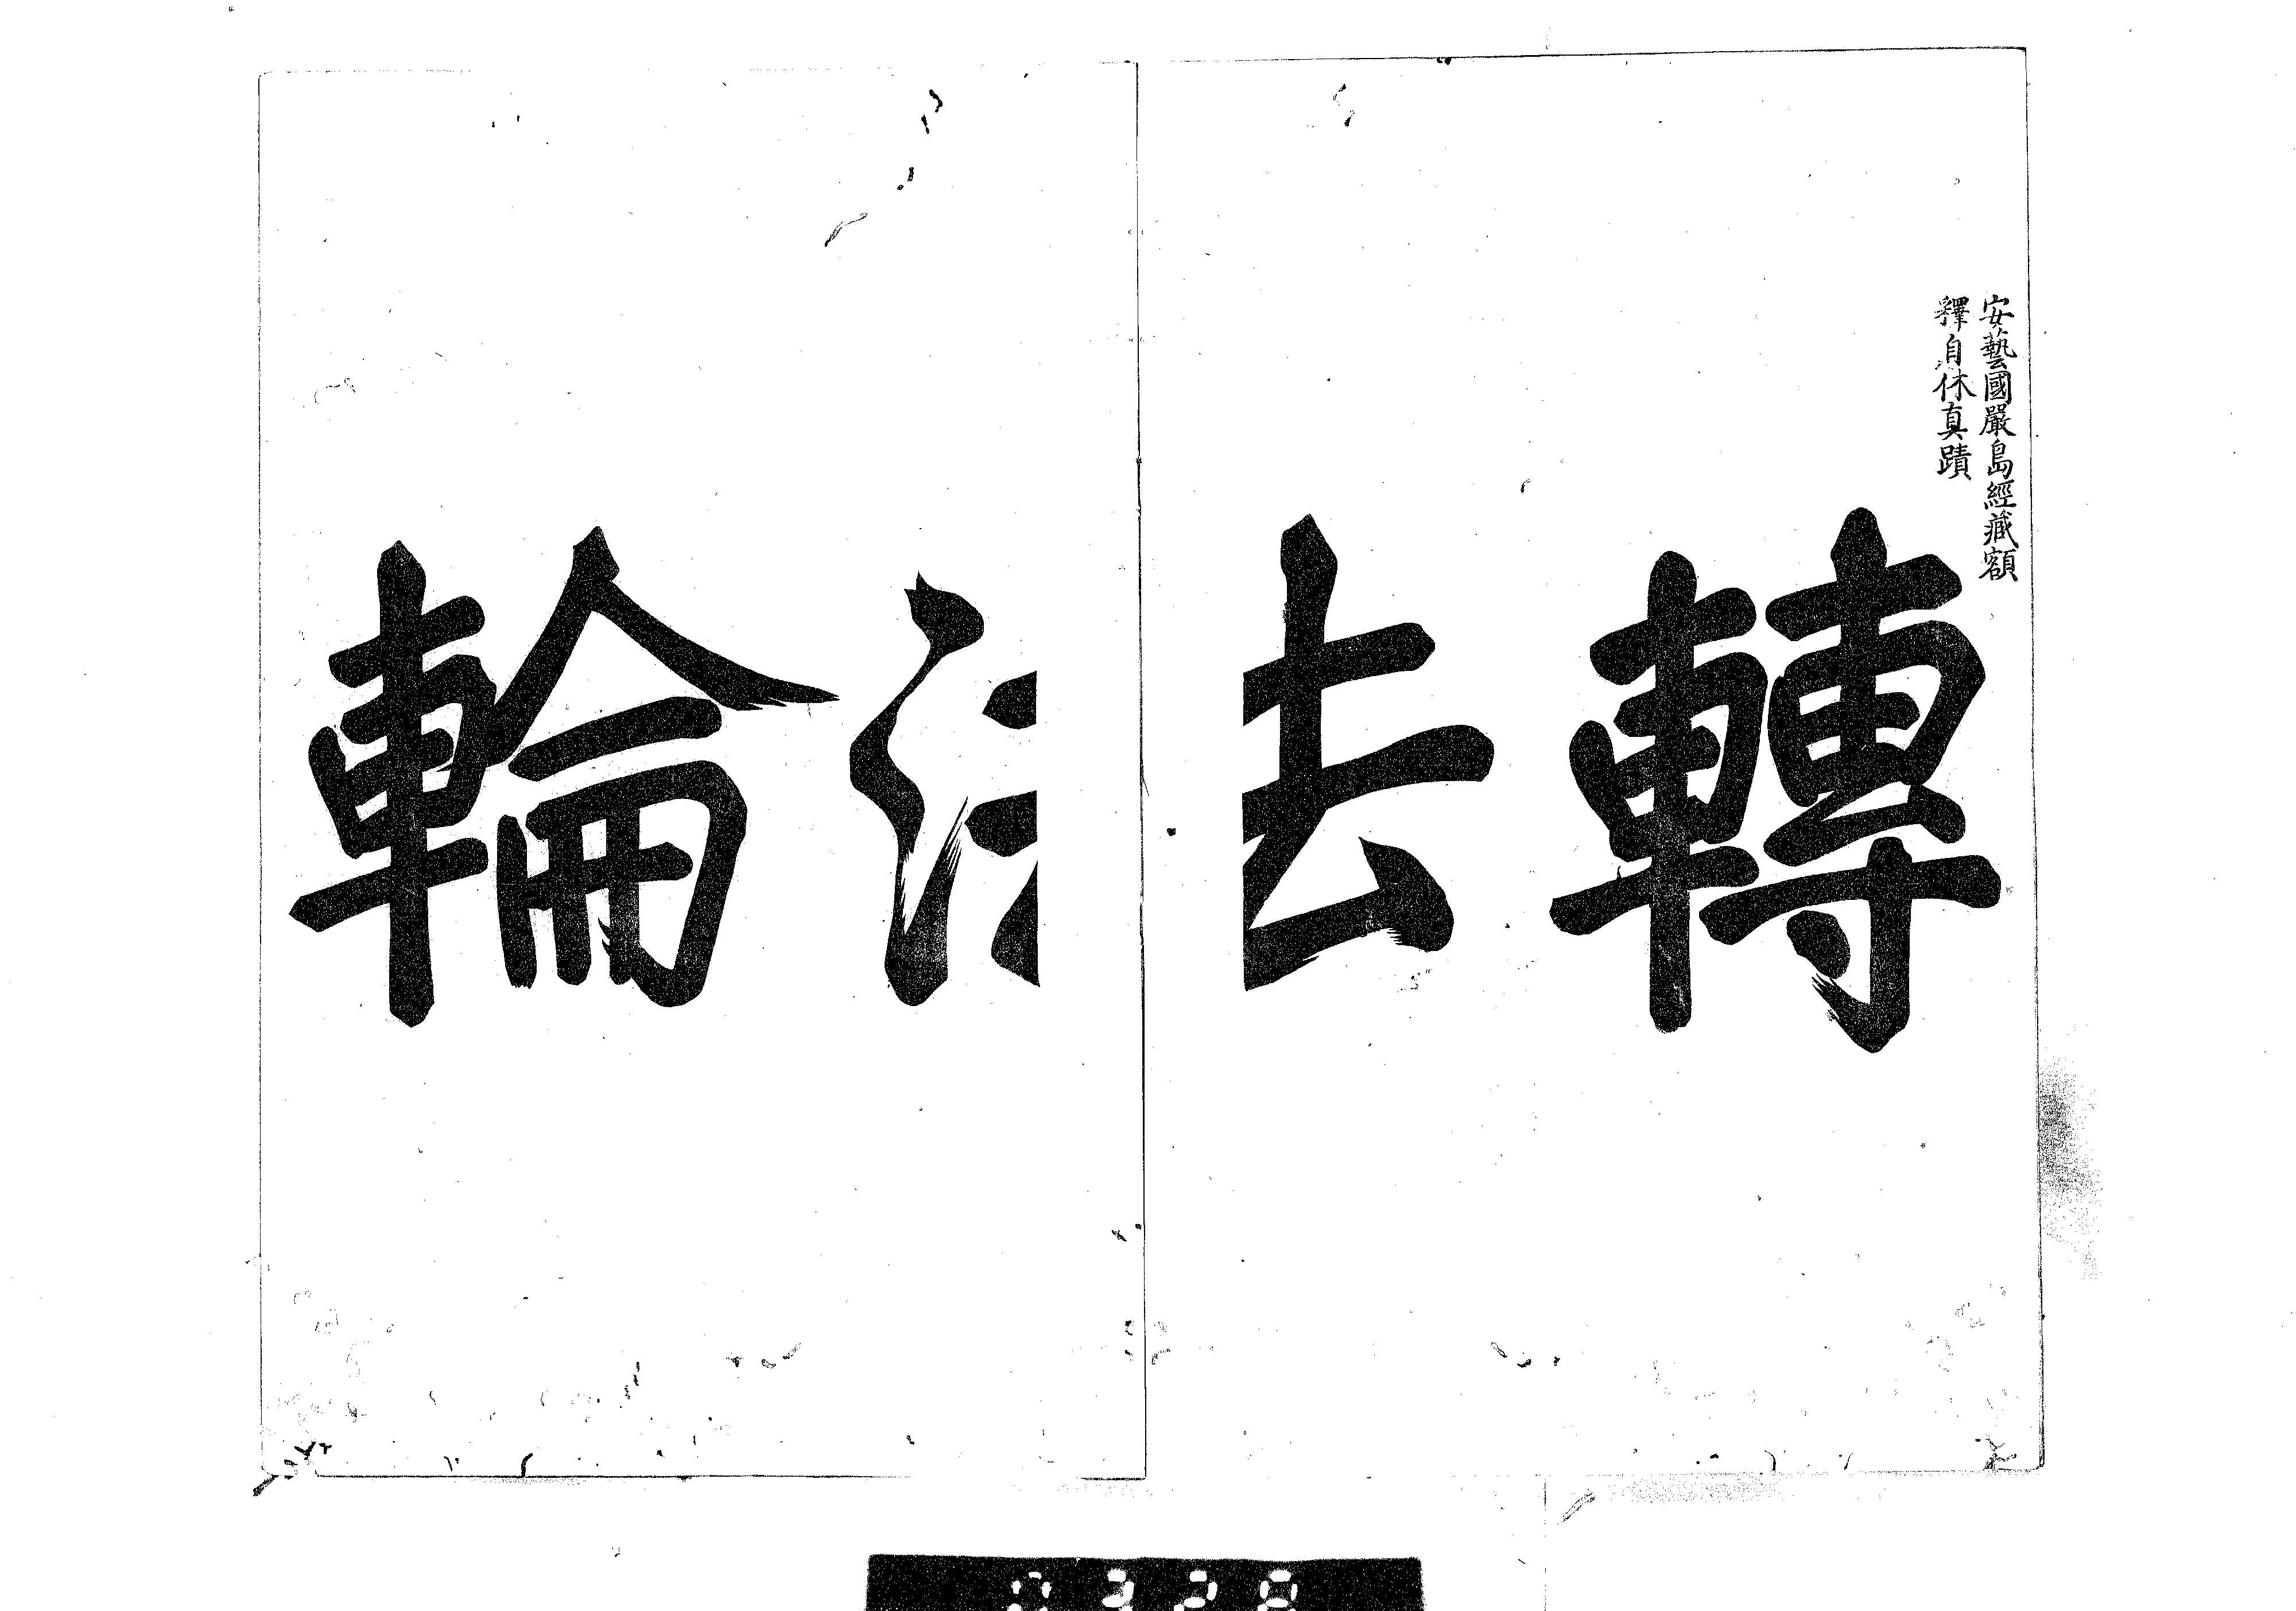 安藝國嚴島經藏額
釋自休真蹟
轉法輪